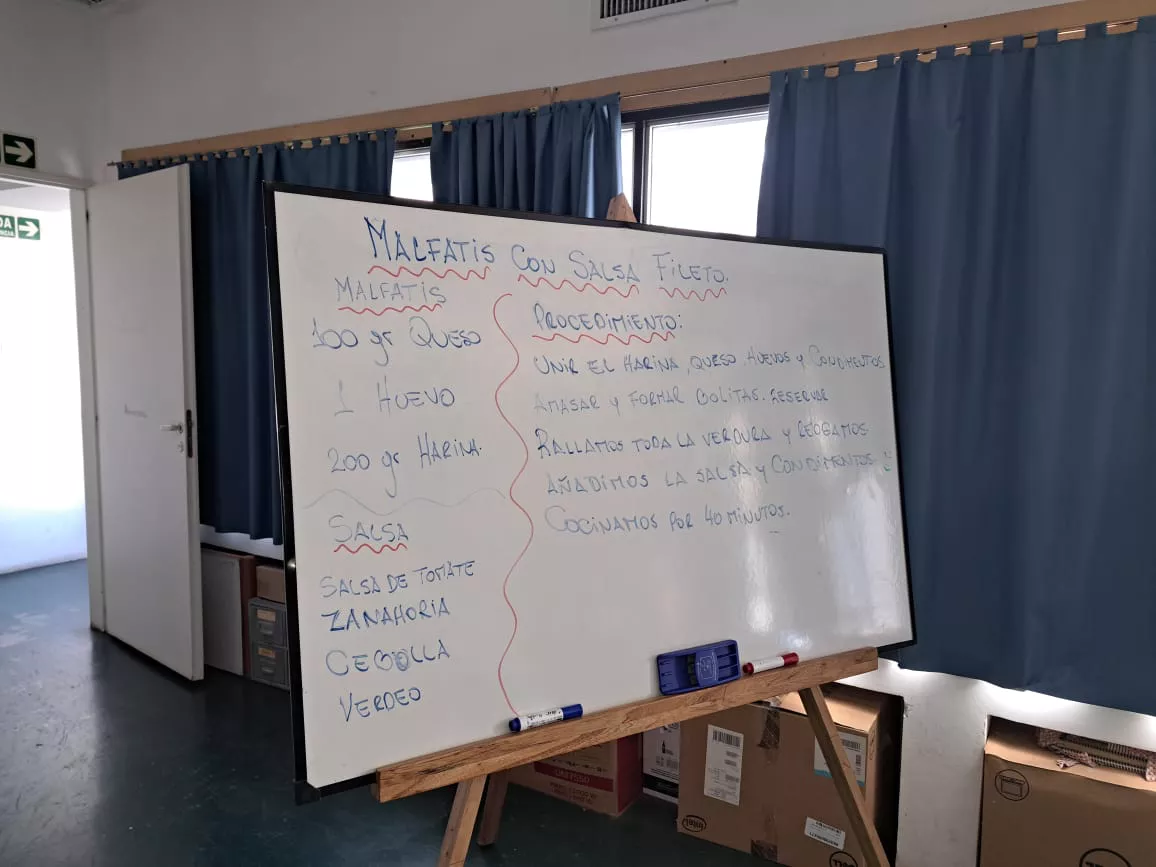 MALFATIS CON SALSA FILETO.
MALFATIS
100 gr QUESO
1 HUEVO
200 gr HARINA.
SALSA
SALSA DE TOMATE
ZANAHORIA
CEBOLLA
VERDEO
PROCEDIMIENTO:
UNIR EL HARINA, QUESO, HUEVOS Y CONDIMENTOS
AMASAR Y FORMAR BOLITAS. RESERVAR
RALLAMOS TODA LA VERDURA Y REOGAMOS
AÑADIMOS LA SALSA Y CONDIMENTOS Y
COCINAMOS POR 40 MINUTOS.
intel